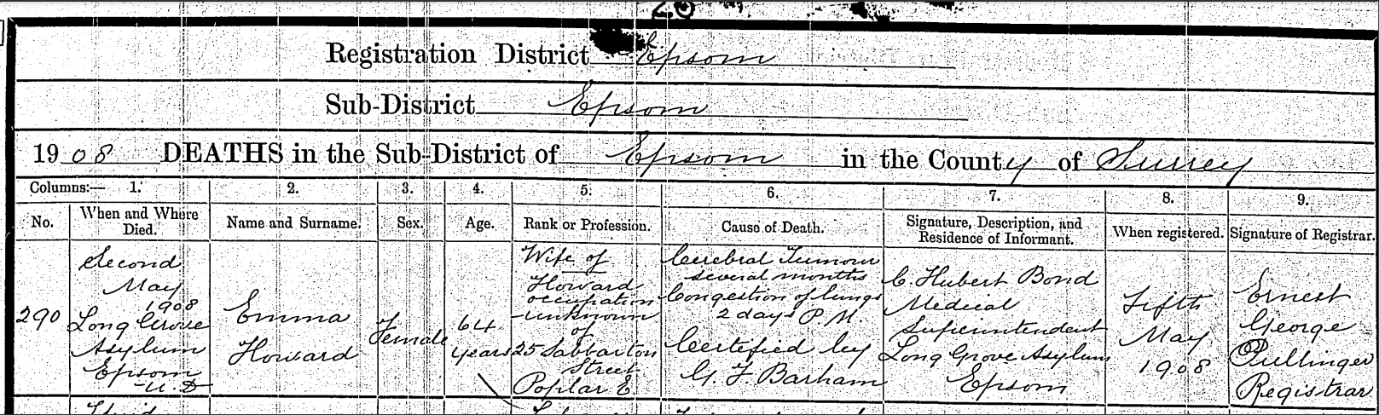 Registration District Epsom
Sub-District Epsom
1908 DEATHS in the Sub-District of Epsom in the County of Surrey
Columns:— 1. 2. 3. 4. 5. 6. 7. 8. 9.
No. When and Where Died. Name and Surname. Sex. Age. Rank or Profession. Cause of Death. Signature, Description, and Residence of Informant. When registered. Signature of Registrar.
290
Second
May
1908
Long Grove
Asylum
Epsom
U.D
Emma
Howard
Female
64
years
Wife of
— Howard
occupation
unknown
of
25 Sabbarton
Street
Poplar E.
Cerebral Tumour
several months
Congestion of lungs
2 days P M
Certified by
G. F. Barham
C. Hubert Bond
Medical
Superintendent
Long Grove Asylum
Epsom
Fifth
May
1908
Ernest
George
Pullinger
Registrar